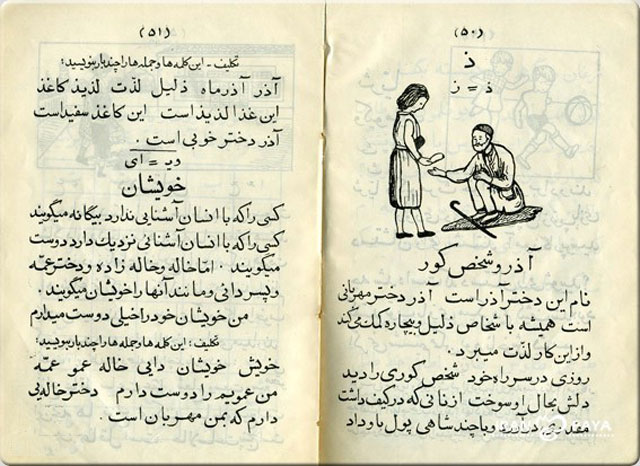 (۵۰)
ذ
ذ = ز
آذر و شخص کور
نام این دختر آذر است آذر دختر مهربانی
است همیشه با شخاص ذلیل و بیچاره کمک می‌کند
و از این کار لذّت میبرد.
روزی در سر راه خود شخص کوری را دید
دلش بحال او سوخت از نانی که در کیف داشت
مقداری درآورد و با چند شاهی پول باو داد
(۵۱)
تکلیف - این کلمه ها و جمله ها را چند بار بنویسید؛
آذر آذر ماه ذلیل لذّت لذیذ کاغذ
این غذا لذیذ است این کاغذ سفید است
آذر دختر خوبی است.
دیـ = ای
خویشان
کسی را که با انسان آشنایی ندارد بیگانه میگویند
کسی را که با انسان آشنائی نزدیک دارد دوست
میگویند. امّا خاله و خاله زاده و دختر عمّه
و پسر دائی و مانند آنها را خویشان میگویند.
من خویشان خود را خیلی دوست میدارم
تکلیف: این کلمه ها و جمله ها را چند بار بنویسید؛
خویش خویشان دایی خاله عمو عمّه
من عمویم را دوست دارم دختر خاله یی
دارم که بمن مهربان است.